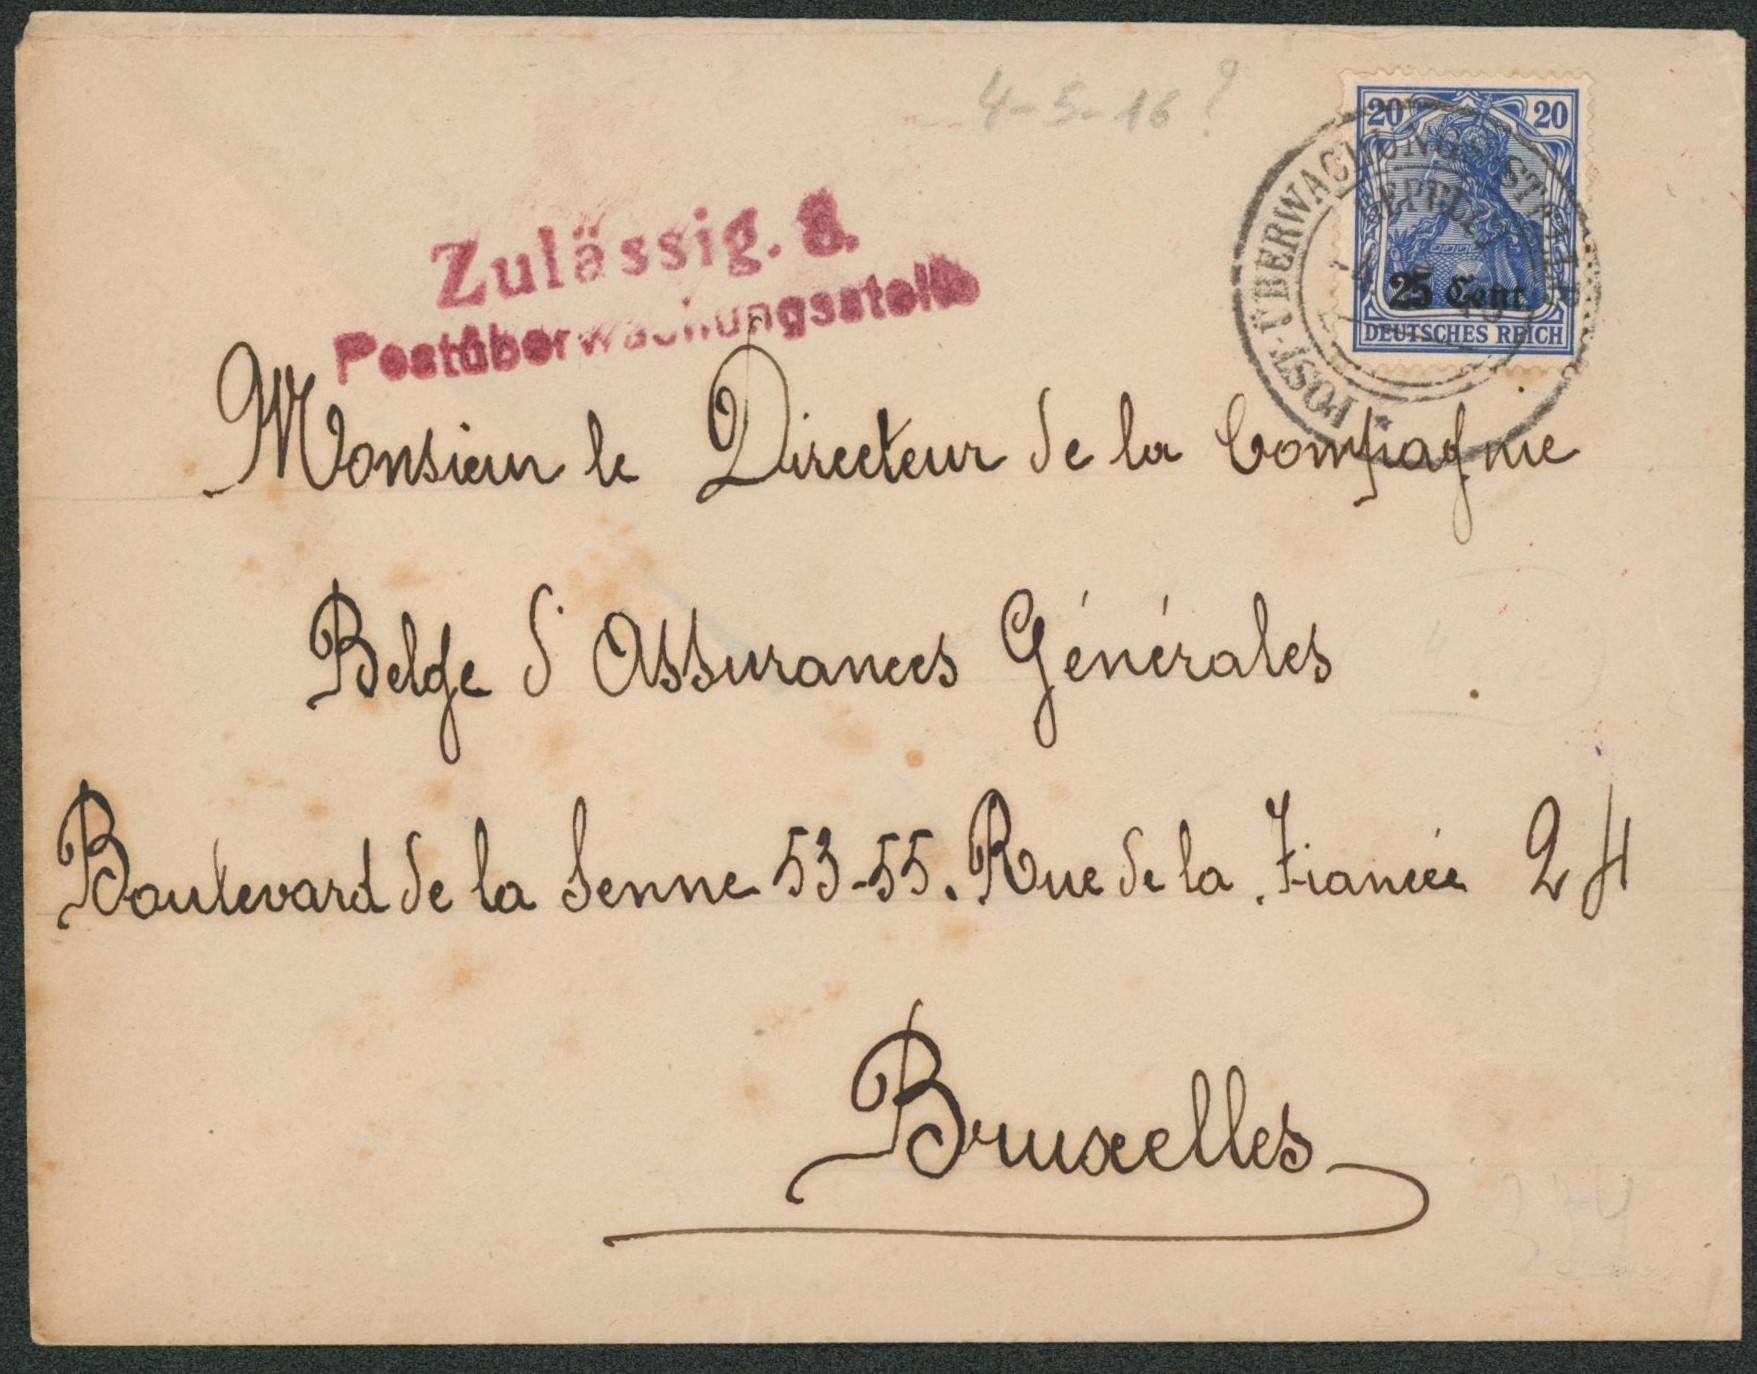 4-5-16?
20 20
25 Cent.
DEUTSCHES REICH
POST-ÜBERWACHUNGSSTELLE
Zulässig. 8.
Postüberwachungsstelle
Monsieur le Directeur de la Compagnie
Belge d'Assurances Générales
Boulevard de la Senne 53-55. Rue de la Fiancée 24
Bruxelles